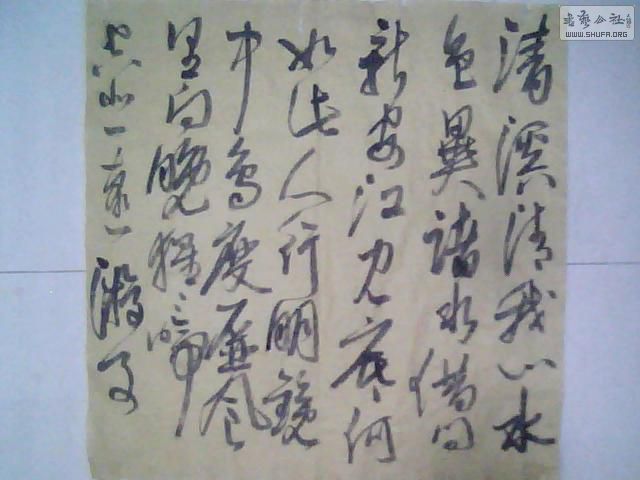 清溪清我心水
色異諸水借问
新安江见底何
如此人行明鏡
中鸟度屏风
里向晚猩〻啼
空悲遠游子
書藝公社
WWW.SHUFA.ORG